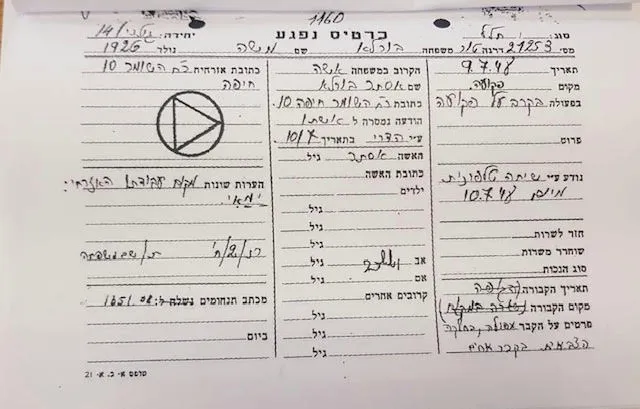 1160
כרטיס נפגע
סוג: חלל
מס׳ 21253 דרגה טור משפחה בורלא שם משה נולד 1926 יחידה: גולני/14
תאריך 9.7.48
מקום פקועה
בפעולה בקרב על פקועה
פרוט
נודע ע״י שיחה טלפונית
מיום 10.7.48
חזר לשרות
שוחרר משרות
סוג הנכות
תאריך הקבורה
מקום הקבורה
פרטים על הקבר עפולה, בחלקה
הצבאית בקבר אחים
הקרוב במשפחה אשה
שם אסתר בורלא
כתובת רח׳ השומר חיפה 10
הודעה נמסרה ל אשתו
ע״י הדרי בתאריך 10/7
האשה אסתר גיל
כתובת האשה
ילדים
גיל
גיל
גיל
גיל
אב גיל
אם גיל
קרובים אחרים
גיל
גיל
גיל
כתובת אזרחית רח׳ השומר 10
חיפה
הערות שונות מקום עבודתו האזרחי:
ימאי.
מכתב תנחומים נשלח ל: 1651
ביום
טופס א- ב. א- 21